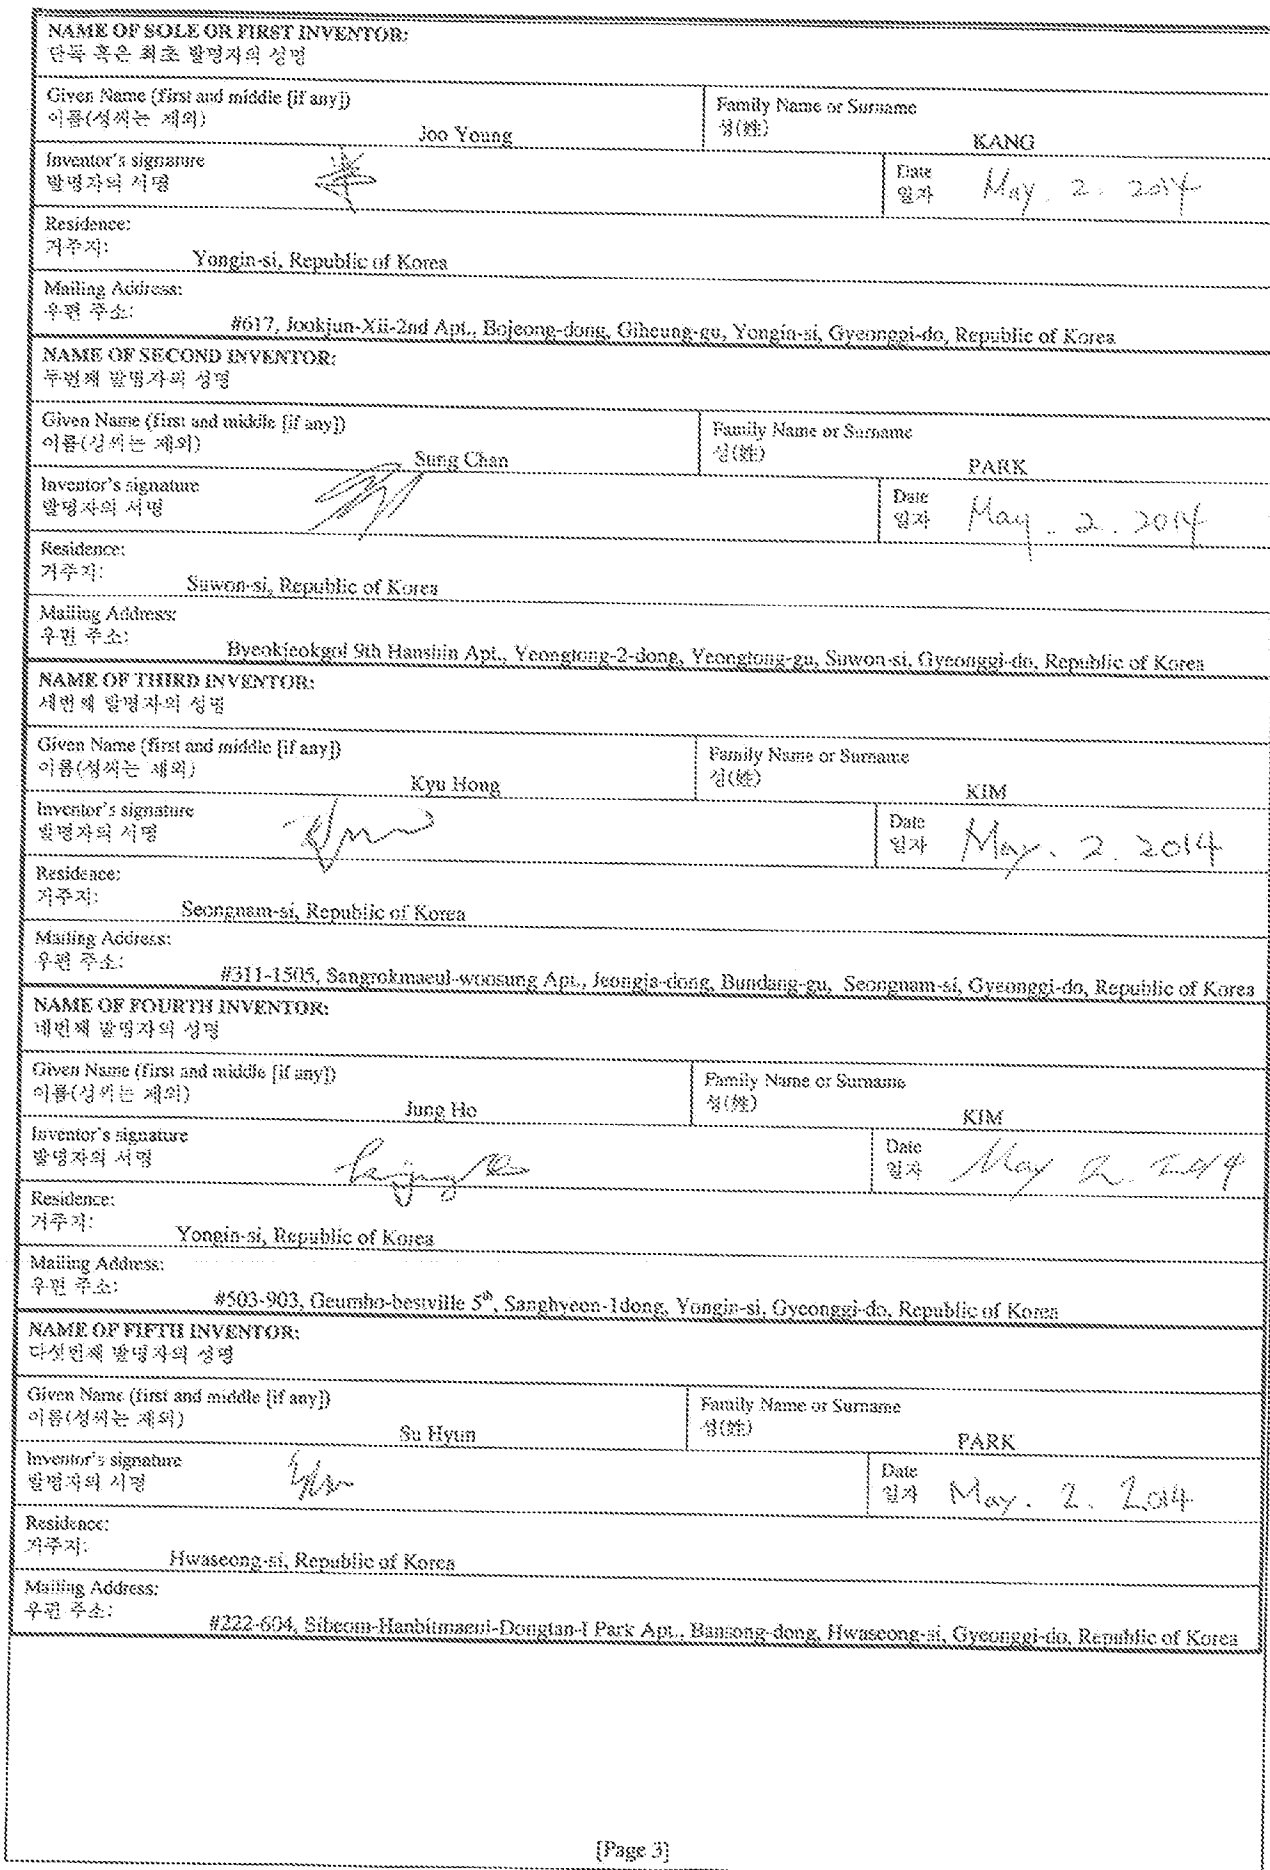 NAME OF SOLE OR FIRST INVENTOR:
단독 혹은 최초 발명자의 성명
Given Name (first and middle [if any])
이름(성씨는 제외)
Joo Young
Family Name or Surname
성(姓)
KANG
Inventor's signature
발명자의 서명
Date
일자
May. 2. 2014
Residence:
거주지:
Yongin-si, Republic of Korea
Mailing Address:
우편 주소:
#617, Jookjun-Xii-2nd Apt., Bojeong-dong, Giheung-gu, Yongin-si, Gyeonggi-do, Republic of Korea
NAME OF SECOND INVENTOR:
두번째 발명자의 성명
Given Name (first and middle [if any])
이름(성씨는 제외)
Sung Chan
Family Name or Surname
성(姓)
PARK
Inventor's signature
발명자의 서명
Date
일자
May. 2. 2014
Residence:
거주지:
Suwon-si, Republic of Korea
Mailing Address:
우편 주소:
Byeokjeokgol 9th Hanshin Apt., Yeongtong-2-dong, Yeongtong-gu, Suwon-si, Gyeonggi-do, Republic of Korea
NAME OF THIRD INVENTOR:
세번째 발명자의 성명
Given Name (first and middle [if any])
이름(성씨는 제외)
Kyu Hong
Family Name or Surname
성(姓)
KIM
Inventor's signature
발명자의 서명
Date
일자
May. 2. 2014
Residence:
거주지:
Seongnam-si, Republic of Korea
Mailing Address:
우편 주소:
#311-1505, Sangrokmaeul-woosung Apt., Jeongja-dong, Bundang-gu, Seongnam-si, Gyeonggi-do, Republic of Korea
NAME OF FOURTH INVENTOR:
네번째 발명자의 성명
Given Name (first and middle [if any])
이름(성씨는 제외)
Jung Ho
Family Name or Surname
성(姓)
KIM
Inventor's signature
발명자의 서명
Date
일자
May 2. 2014
Residence:
거주지:
Yongin-si, Republic of Korea
Mailing Address:
우편 주소:
#503-903, Geumho-bestville 5th, Sanghyeon-1dong, Yongin-si, Gyeonggi-do, Republic of Korea
NAME OF FIFTH INVENTOR:
다섯번째 발명자의 성명
Given Name (first and middle [if any])
이름(성씨는 제외)
Su Hyun
Family Name or Surname
성(姓)
PARK
Inventor's signature
발명자의 서명
Date
일자
May. 2. 2014
Residence:
거주지:
Hwaseong-si, Republic of Korea
Mailing Address:
우편 주소:
#222-604, Sibeom-Hanbitmaeul-Dongtan-I Park Apt., Bansong-dong, Hwaseong-si, Gyeonggi-do, Republic of Korea
[Page 3]